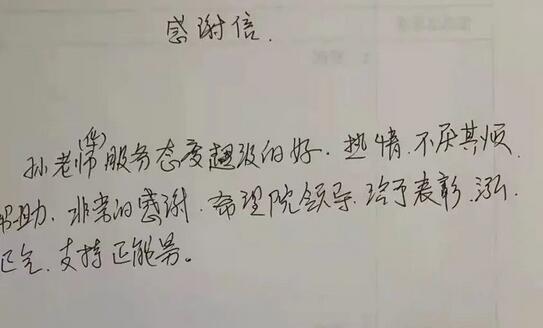 感谢信.
孙老师(华)服务态度超级的好.热情.不厌其烦.
帮助.非常的感谢.希望院领导.给予表彰.
正气.支持正能量。